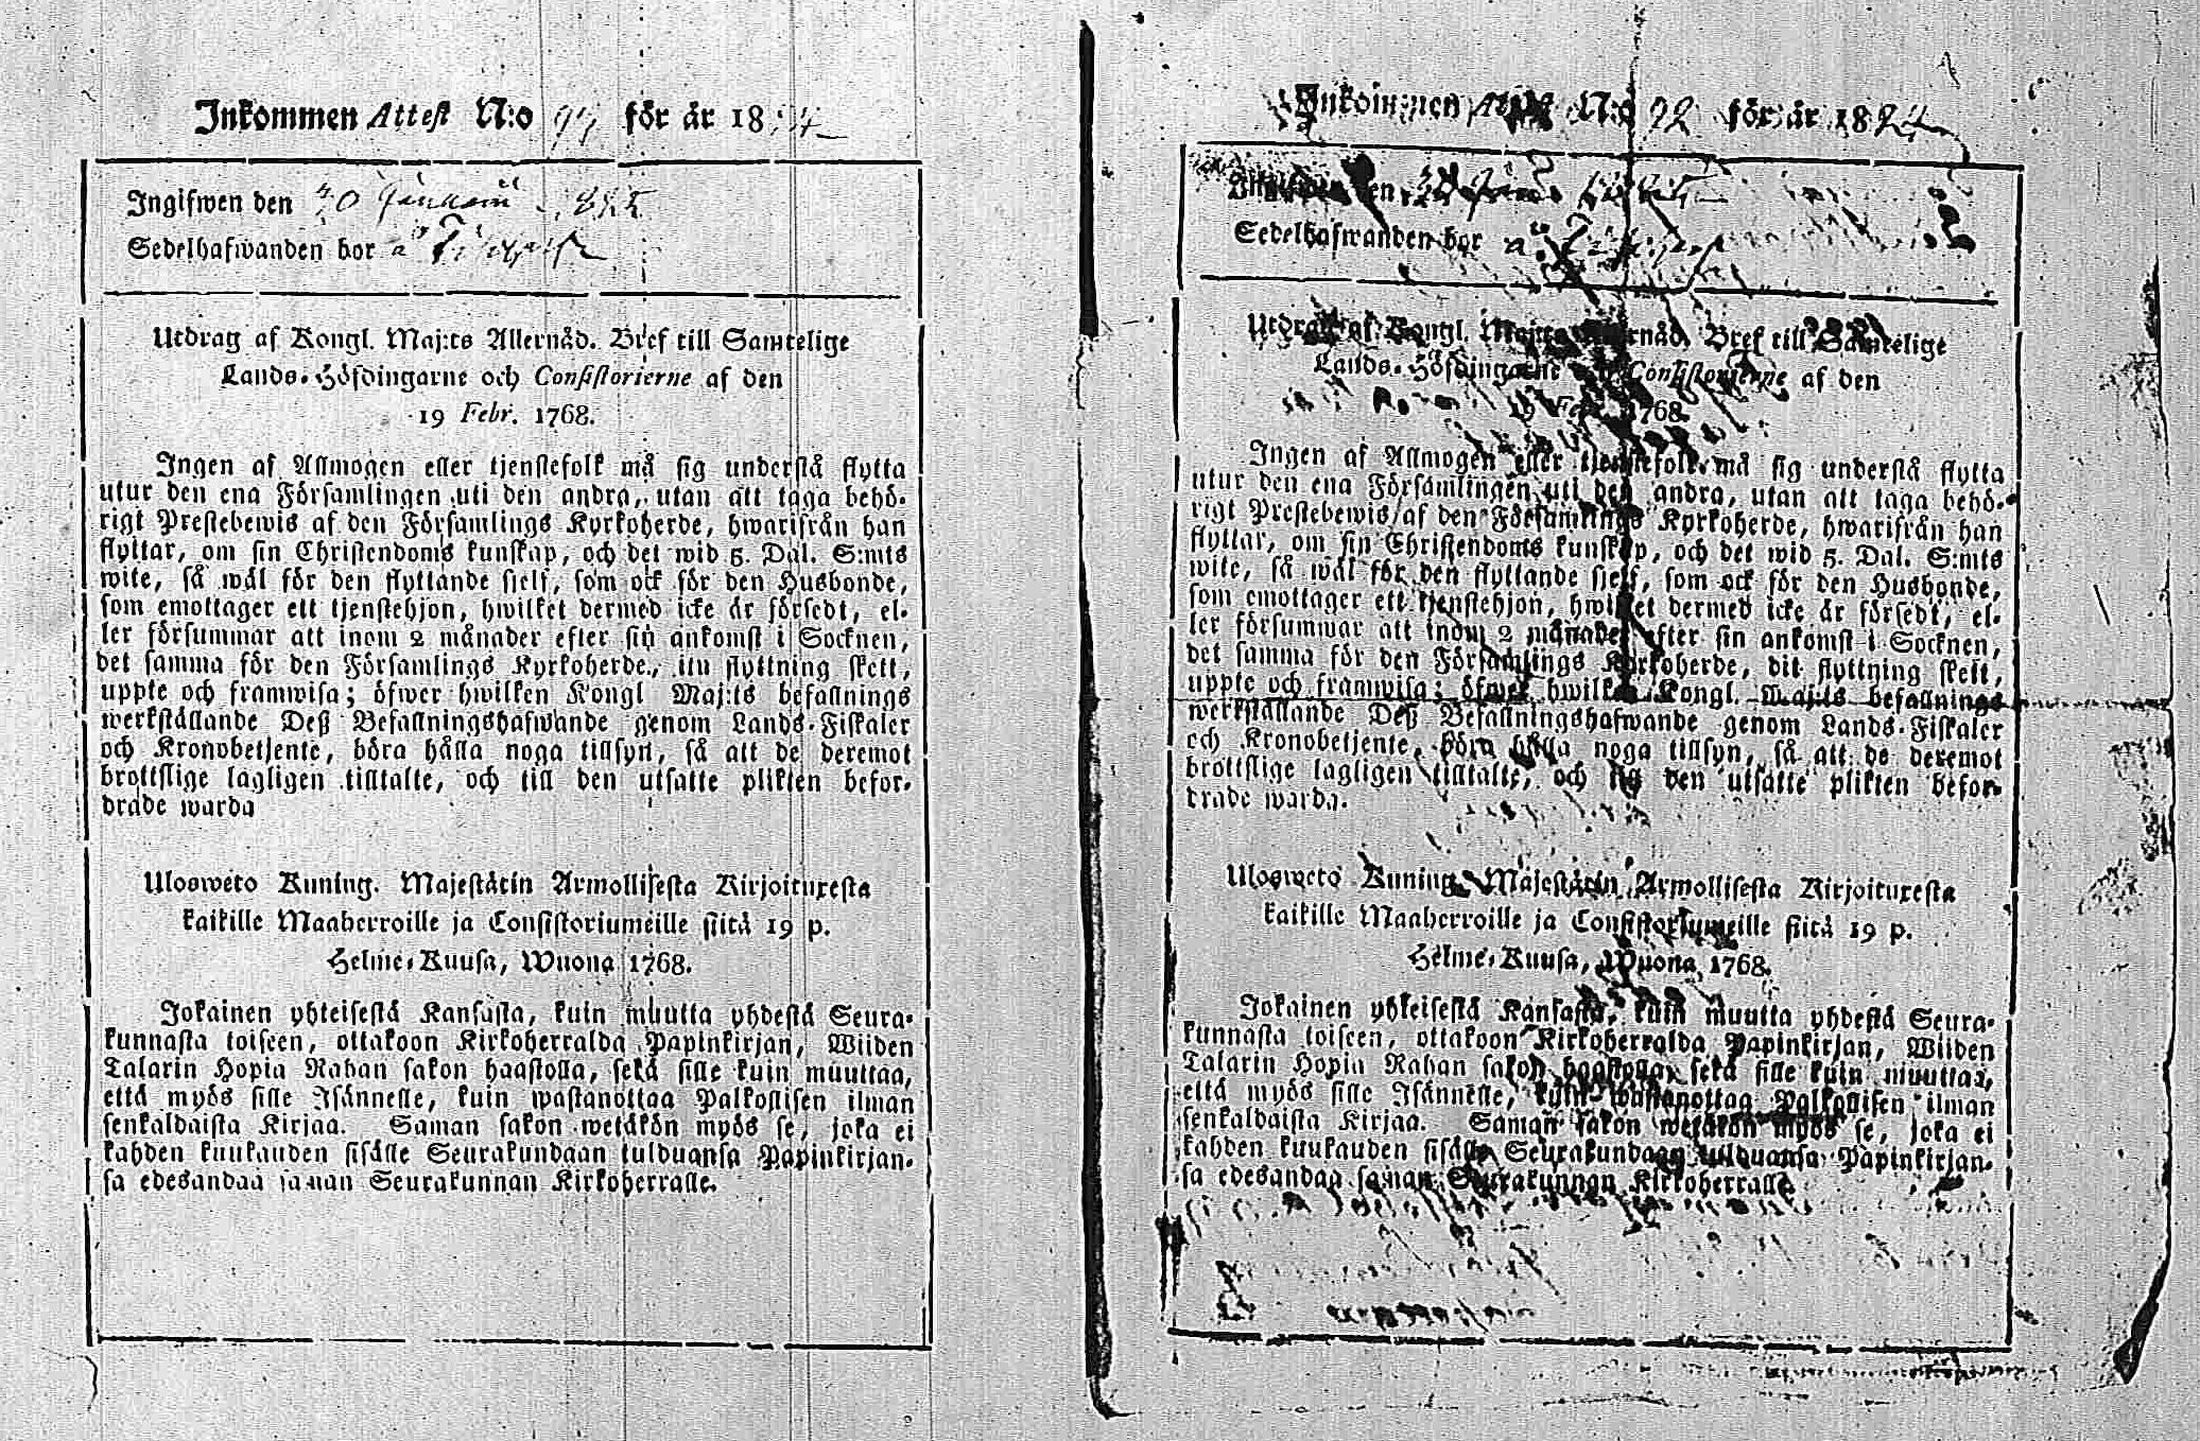 Inkommen Attest N:o för år 18
Ingifwen den 1825
Sedelhafwanden bor å
Utdrag af Kongl. Maj:ts Allernåd. Bref till Samtelige
Lands-Höfdingarne och Consistorierne af den
19 Febr. 1768.
Ingen af Allmogen eller tjenstefolk må sig understå flytta
utur den ena Församlingen uti den andra, utan att taga behö-
rigt Prestebewis af den Församlings Kyrkoherde, hwarifrån han
flyttar, om sin Christendoms kunskap, och det wid 5. Dal. S:mts
wite, så wäl för den flyttande sjelf, som ock för den Husbonde,
som emottager ett tjenstehjon, hwilket dermed icke är försedt, el-
ler försummar att inom 2 månader efter sin ankomst i Socknen,
det samma för den Församlings Kyrkoherde, itu flyttning skett,
uppte och framwisa; öfwer hwilken Kongl Maj:ts befallnings
werkställande Deß Befallningshafwande genom Lands-Fiskaler
och Kronobetjente, böra hålla noga tillsyn, så att de deremot
brottslige lagligen tilltalte, och till den utsatte plikten befor-
drade warda
Ulosweto Kuning. Majestätin Armollisesta Kirjoituxesta
kaikille Maaherroille ja Consistoriumeille siitä 19 p.
Helme-Kuusa, Wuona 1768.
Jokainen yhteisestä Kansasta, kuin muutta yhdestä Seura-
kunnasta toiseen, ottakoon Kirkoherralda Papinkirjan, Wiiden
Talarin Hopia Rahan sakon haastolla, sekä sille kuin muuttaa,
että myös sille Isännelle, kuin wastanottaa Palkollisen ilman
senkaldaista Kirjaa. Saman sakon wetäkön myös se, joka ei
kahden kuukauden sisälle Seurakundaan tulduansa Papinkirjan-
sa edesandaa saman Seurakunnan Kirkoherralle.
Inkommen Attest N:o 92 för år 1824
Ingifwen den
Sedelhafwanden bor å
Utdrag af Kongl. Maj:ts Allernåd. Bref till Samtelige
Lands-Höfdingarne och Consistorierne af den
19 Febr. 1768.
Ingen af Allmogen eller tjenstefolk må sig understå flytta
utur den ena Församlingen uti den andra, utan att taga behö-
rigt Prestebewis af den Församlings Kyrkoherde, hwarifrån han
flyttar, om sin Christendoms kunskap, och det wid 5. Dal. S:mts
wite, så wäl för den flyttande sjelf, som ock för den Husbonde,
som emottager ett tjenstehjon, hwilket dermed icke är försedt, el-
ler försummar att inom 2 månader efter sin ankomst i Socknen,
det samma för den Församlings Kyrkoherde, dit flyttning skett,
uppte och framwisa; öfwer hwilken Kongl. Maj:ts befallnings
werkställande Deß Befallningshafwande genom Lands-Fiskaler
och Kronobetjente, böra hålla noga tillsyn, så att de deremot
brottslige lagligen tilltalte, och till den utsatte plikten befor-
drade warda.
Ulosweto Kuning. Majestätin Armollisesta Kirjoituxesta
kaikille Maaherroille ja Consistoriumeille siitä 19 p.
Helme-Kuusa, Wuona 1768.
Jokainen yhteisestä Kansasta, kuin muutta yhdestä Seura-
kunnasta toiseen, ottakoon Kirkoherralda Papinkirjan, Wiiden
Talarin Hopia Rahan sakon haastolla, sekä sille kuin muuttaa,
että myös sille Isännelle, kuin wastanottaa Palkollisen ilman
senkaldaista Kirjaa. Saman sakon wetäkön myös se, joka ei
kahden kuukauden sisälle Seurakundaan tulduansa Papinkirjan-
sa edesandaa saman Seurakunnan Kirkoherralle.